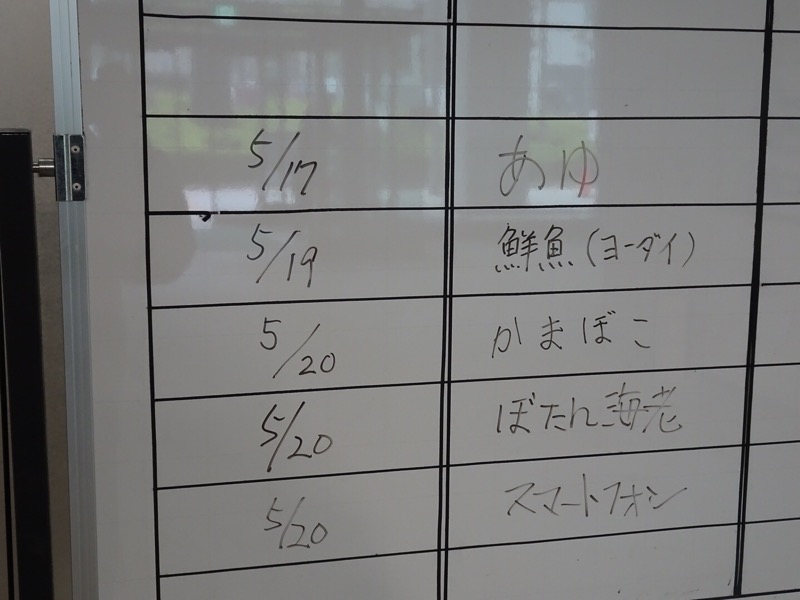 5/17 あゆ
5/19 鮮魚(ヨーダイ)
5/20 かまぼこ
5/20 ぼたん海老
5/20 スマートフォン